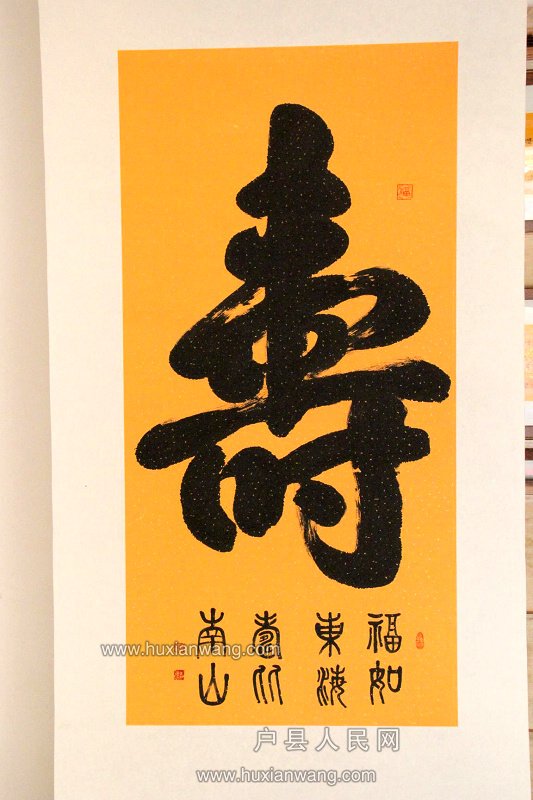 壽
福如
東海
壽比
南山
福
www.huxianwang.com
户县人民网
www.huxianwang.com